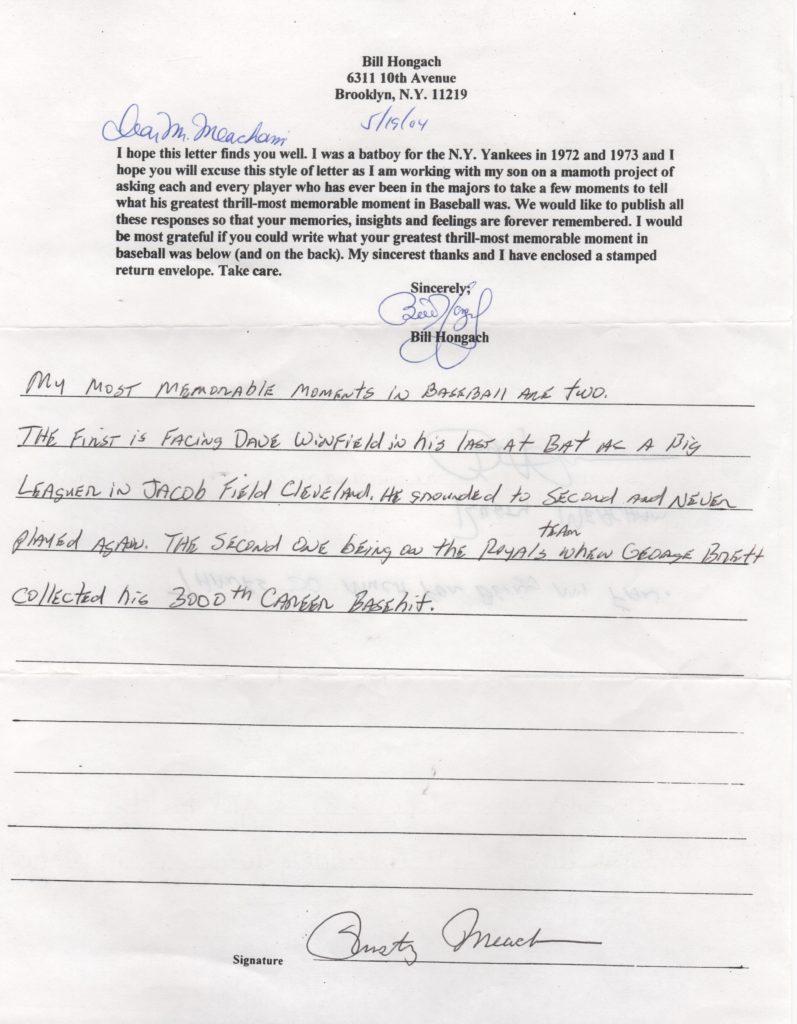 Bill Hongach
6311 10th Avenue
Brooklyn, N.Y. 11219
5/19/04
Dear Mr. Meacham
I hope this letter finds you well. I was a batboy for the N.Y. Yankees in 1972 and 1973 and I
hope you will excuse this style of letter as I am working with my son on a mamoth project of
asking each and every player who has ever been in the majors to take a few moments to tell
what his greatest thrill-most memorable moment in Baseball was. We would like to publish all
these responses so that your memories, insights and feelings are forever remembered. I would
be most grateful if you could write what your greatest thrill-most memorable moment in
baseball was below (and on the back). My sincerest thanks and I have enclosed a stamped
return envelope. Take care.
Sincerely;
Bill Hongach
Bill Hongach
My most memorable moments in Baseball are two.
The first is facing Dave Winfield in his last at bat as a Big
Leaguer in Jacob Field Cleveland. He grounded to second and never
played again. The second one being on the Royals team when George Brett
collected his 3000th career basehit.
Signature
Rusty Meach